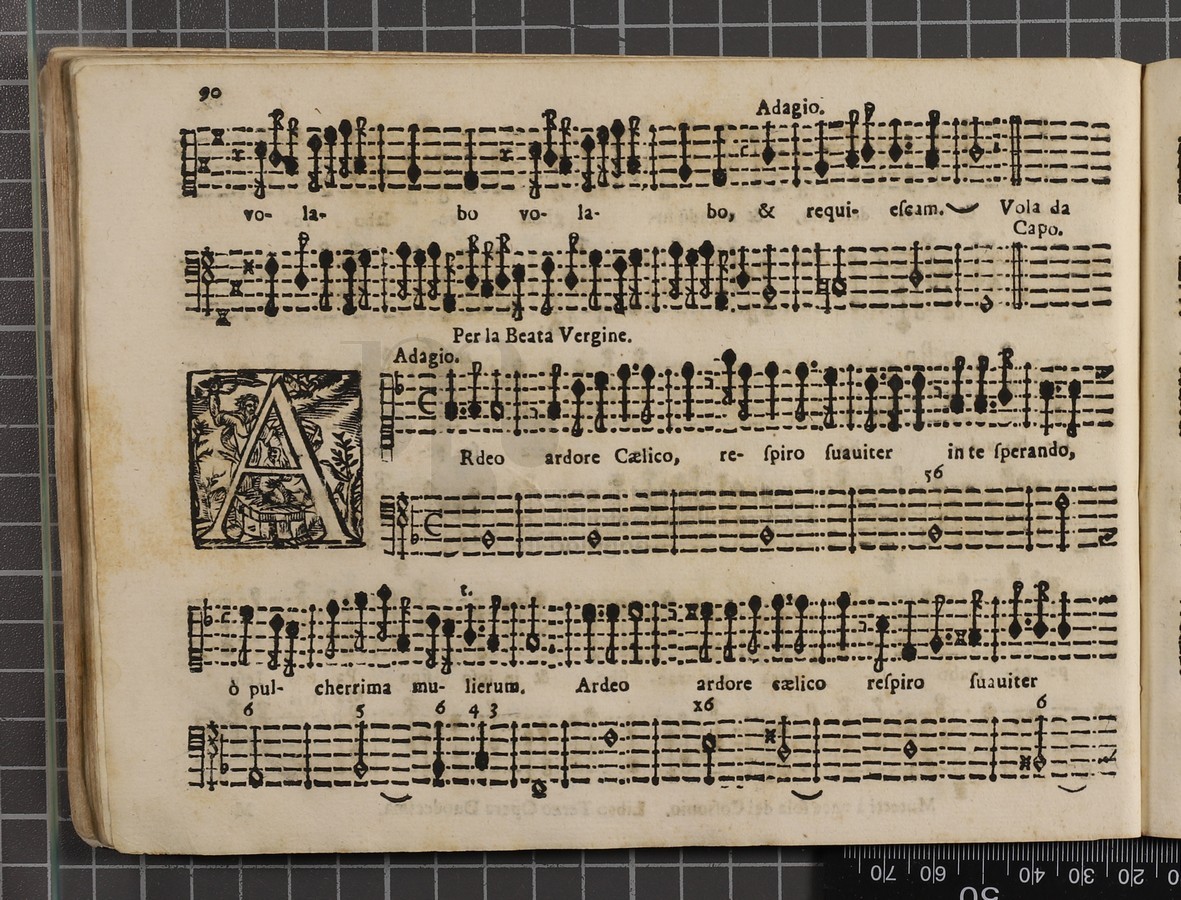 90
Adagio.
vo- la- bo vo- la- bo, & requi- eſcam. Vola da
Capo.
Per la Beata Vergine.
Adagio.
A
Rdeo ardore Cælico, re- ſpiro ſuauiter in te ſperando,
56
t.
ò pul- cherrima mu- lierum. Ardeo ardore cælico reſpiro ſuauiter
6 5 6 4 3 x6 6
70 60 50 40 30 20 10